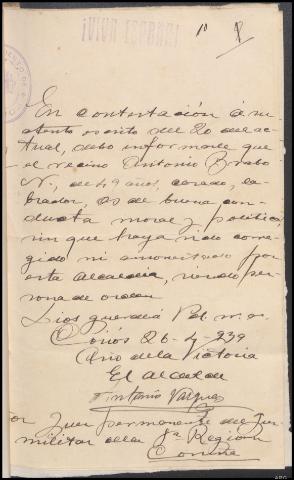 ¡VIVA ESPAÑA!
En contestación á su
atento escrito del 20 del ac-
tual, debo informarle que
el vecino Antonio
N., de 49 años, casado, la-
brador, es de buena con-
ducta moral y política,
sin que haya sido corre-
gido ni amonestado por
esta Alcaldía, siendo per-
sona de orden
Dios guarde a Vd. m. a.
26-4-939
Año de la Victoria
El Alcalde
Antonio Vázquez
or Juez permanente del
militar de la 8ª Región
Coruña